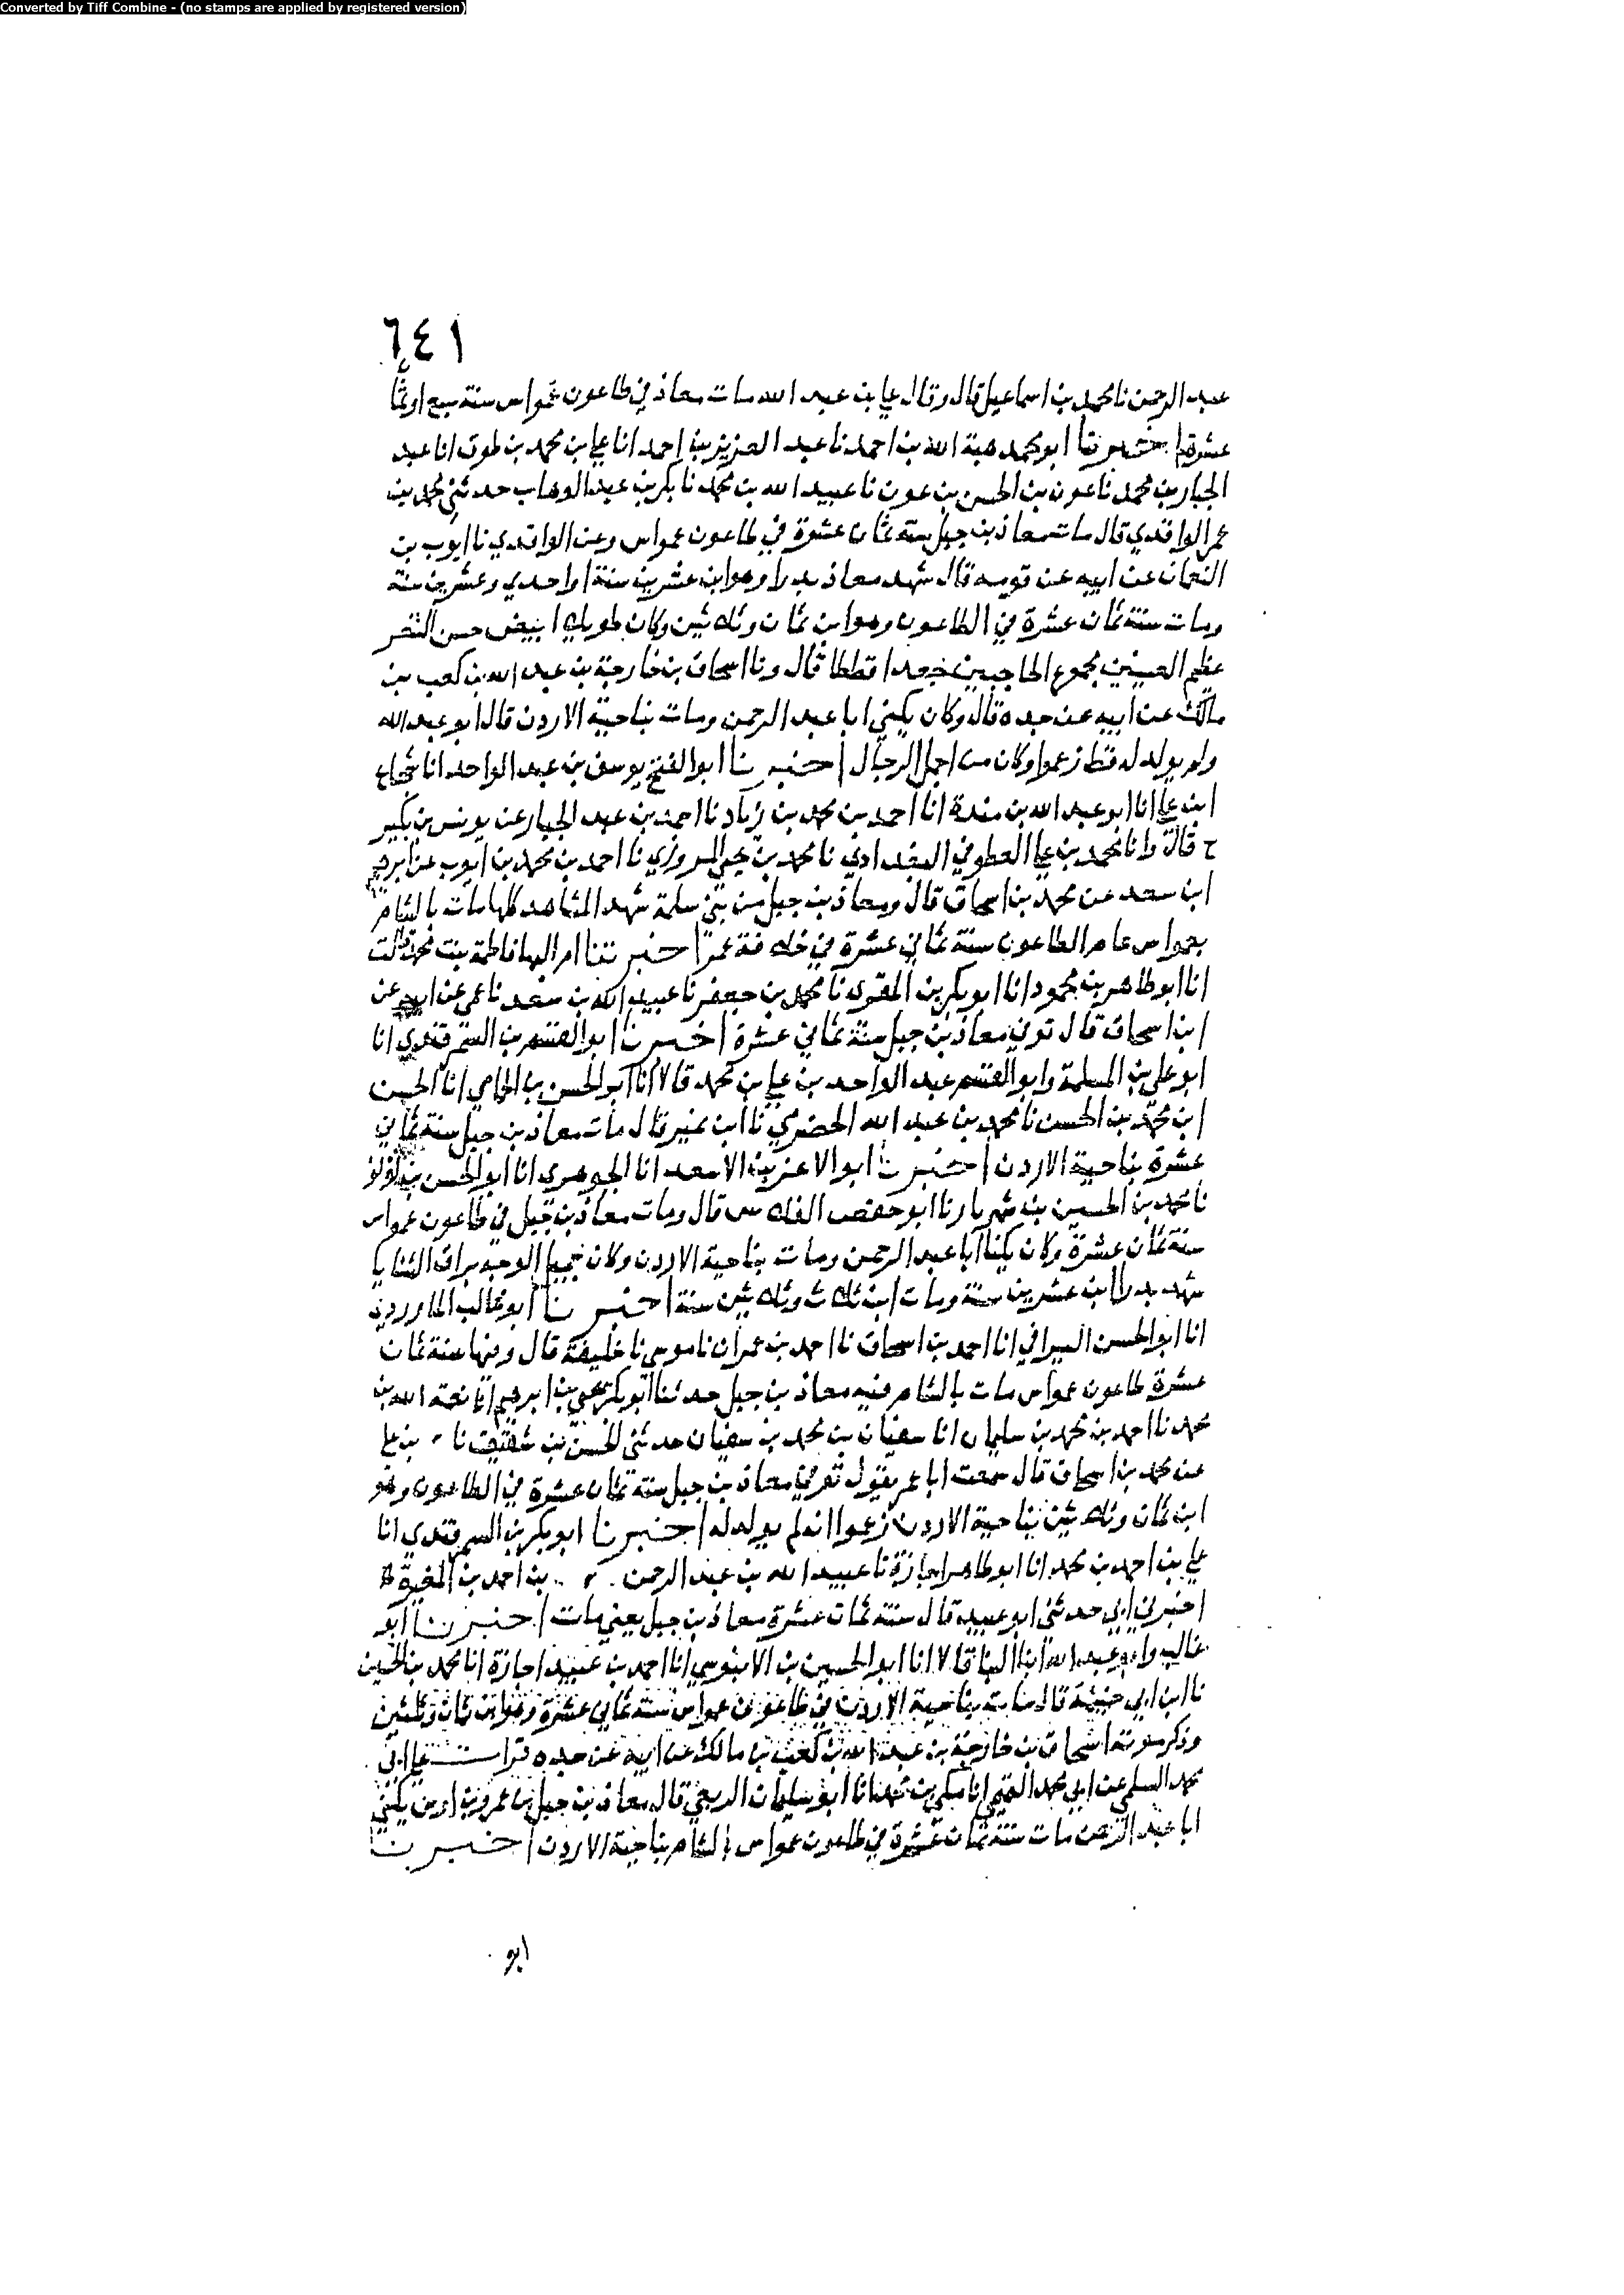 Converted by Tiff Combine - (no stamps are applied by registered version)
٦٤١
عبد الرحمن نا محمد بن اسماعيل قال وقال علي بن عبد الله مات معاذ في طاعون عمواس سنة سبع او ثمان
عشرة اخبرنا ابو محمد هبة الله بن احمد نا عبد العزيز بن احمد انا علي بن محمد بن طوق انا عبد
الجبار بن محمد نا عون بن الحسن بن عون نا عبيد الله بن محمد نا بكر بن عبد الوهاب حدثني محمد بن
عمر الواقدي قال مات معاذ بن جبل سنة ثمان عشرة في طاعون عمواس وعن الواقدي نا ايوب بن
النعمان عن ابيه عن قومه قال شهد معاذ بدرا وهو ابن عشرين سنة او احدي وعشرين سنة
ومات سنة ثمان عشرة في الطاعون وهو ابن ثمان وثلاثين وكان طويلا ابيض حسن الثغر
عظيم العينين مجموع الحاجبين جعدا قططا قال ونا اسحاق بن خارجة بن عبد الله بن كعب بن
مالك عن ابيه عن جده قال وكان يكني ابا عبد الرحمن ومات بناحية الاردن قال ابو عبد الله
ولم يولد له قط زعموا وكان من اجمل الرجال اخبرنا ابو الفتح يوسف بن عبد الواحد انا شجاع
ابن علي انا ابو عبد الله بن مندة انا احمد بن محمد بن زياد نا احمد بن عبد الجبار عن يونس بن بكير
ح قال وانا محمد بن علي العطوفي البغدادي نا محمد بن يحي المروزي نا احمد بن محمد بن ايوب عن ابرهيم
ابن سعد عن محمد بن اسحاق قال ومعاذ بن جبل من بني سلمة شهد المشاهد كلها مات بالشام
بعمواس عام الطاعون سنة ثماني عشرة في خلافة عمر اخبرتنا ام البها فاطمة بنت محمد قالت
انا ابو طاهر بن محمود انا ابو بكر بن المقرى نا محمد بن جعفر نا عبيد الله بن سعد نا عمي عن ابيه عن
ابن اسحاق قال توفي معاذ بن جبل سنة ثماني عشرة اخبرنا ابو القسم بن السمرقندي انا
ابو علي بن المسلمة وابو القسم عبد الواحد بن علي بن محمد قالا انا ابو الحسن بن الحمامي انا الحسن
ابن محمد بن الحسن نا محمد بن عبد الله الحضرمي نا ابن نمير قال مات معاذ بن جبل سنة ثماني
عشرة بناحية الاردن اخبرنا ابو الاعز بن الاسعد انا الجوهري انا ابو الحسن بن لؤلؤ
نا محمد بن الحسين بن شهريار نا ابو حفص الفلاس قال ومات معاذ بن جبل في طاعون عمواس
سنة ثمان عشرة وكان يكنا ابا عبد الرحمن ومات بناحية الاردن وكان جميل الوجه براق الثنايا
شهد بدرا ابن عشرين سنة ومات ابن ثلاث وثلاثين سنة اخبرنا ابو غالب الماوردي
انا ابو الحسن السيرافي انا احمد بن اسحاق نا احمد بن عمران نا موسى نا خليفة قال وفيها سنة ثمان
عشرة طاعون عمواس مات بالشام فيه معاذ بن جبل حدثنا ابو بكر يحي بن ابرهيم انا نعمة الله بن
محمد نا احمد بن محمد بن سليمان انا سفيان بن محمد بن سفيان حدثني الحسن بن سفين نا بن علي
عن محمد بن اسحاق قال سمعت ابا عمر يقول توفي معاذ بن جبل سنة ثمان عشرة في الطاعون وهو
ابن ثمان وثلاثين بناحية الاردن زعموا انه لم يولد له اخبرنا ابو بكر بن السمرقندي انا
علي بن احمد بن محمد انا ابو طاهر اجازة نا عبيد الله بن عبد الرحمن بن احمد بن المغيرة
اخبرني ابي حدثني ابو عبيد قال سنة ثمان عشرة معاذ بن جبل يعني مات اخبرنا ابو
غالب وابو عبد الله ابنا البنا قالا انا ابو الحسين بن الابنوسي انا احمد بن عبيد اجازة انا محمد بن الحسين
نا ابن ابي خيثمة قال مات بناحية الاردن في طاعون عمواس سنة ثماني عشرة وهو ابن ثمان وثلثين
وذكر موته اسحاق بن خارجة بن عبد الله بن كعب بن مالك عن ابيه عن جده قرات علي ابي
محمد السلمي عن ابي محمد التميمي انا مكي بن محمد انا ابو سليمان الربعي قال معاذ بن جبل بن عمرو بن اوس يكني
ابا عبد الرحمن مات سنة ثمان عشرة في طاعون عمواس بالشام بناحية الاردن اخبرنا
ابو